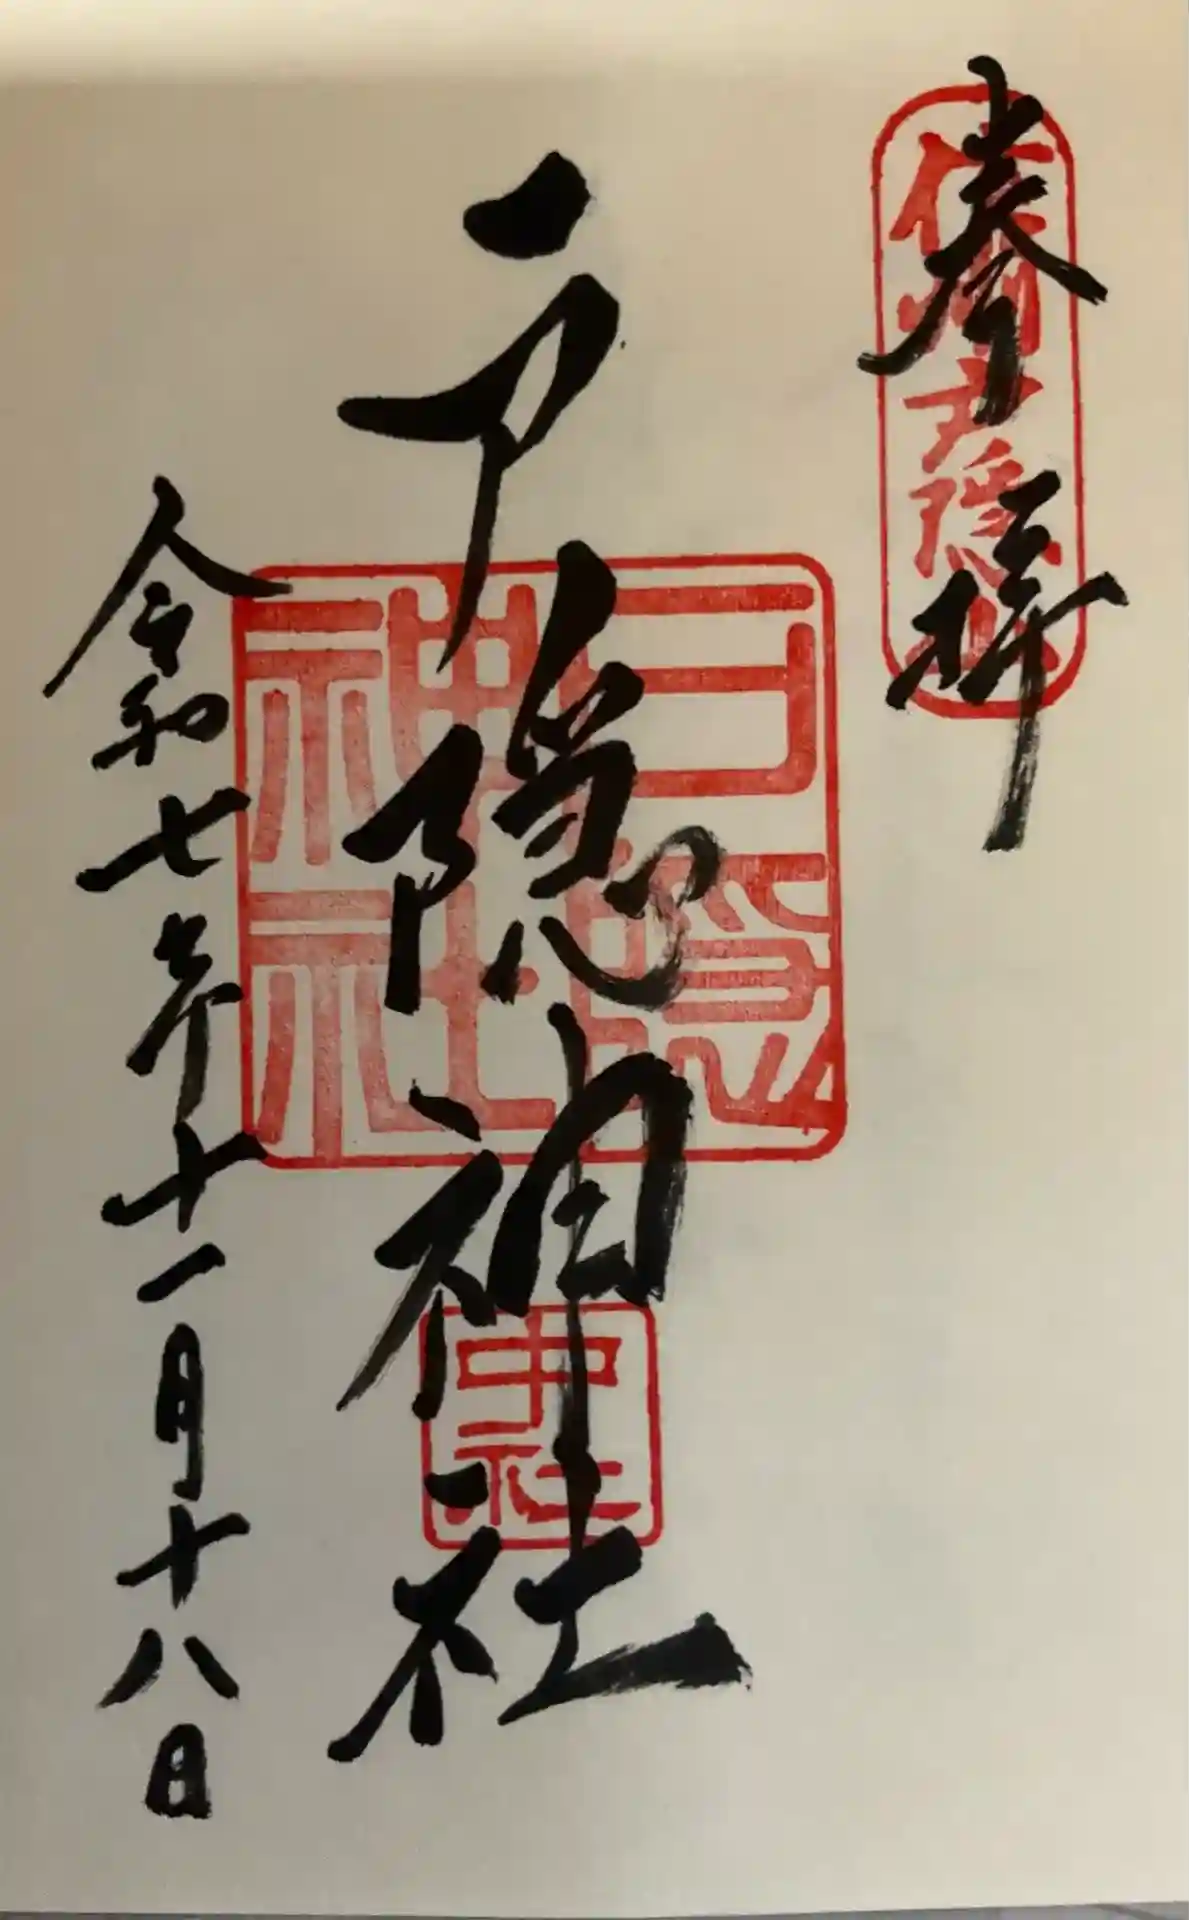 奉拝
信州戸隠山
戸隠神社
戸隠神社
中社
令和七年十一月十八日